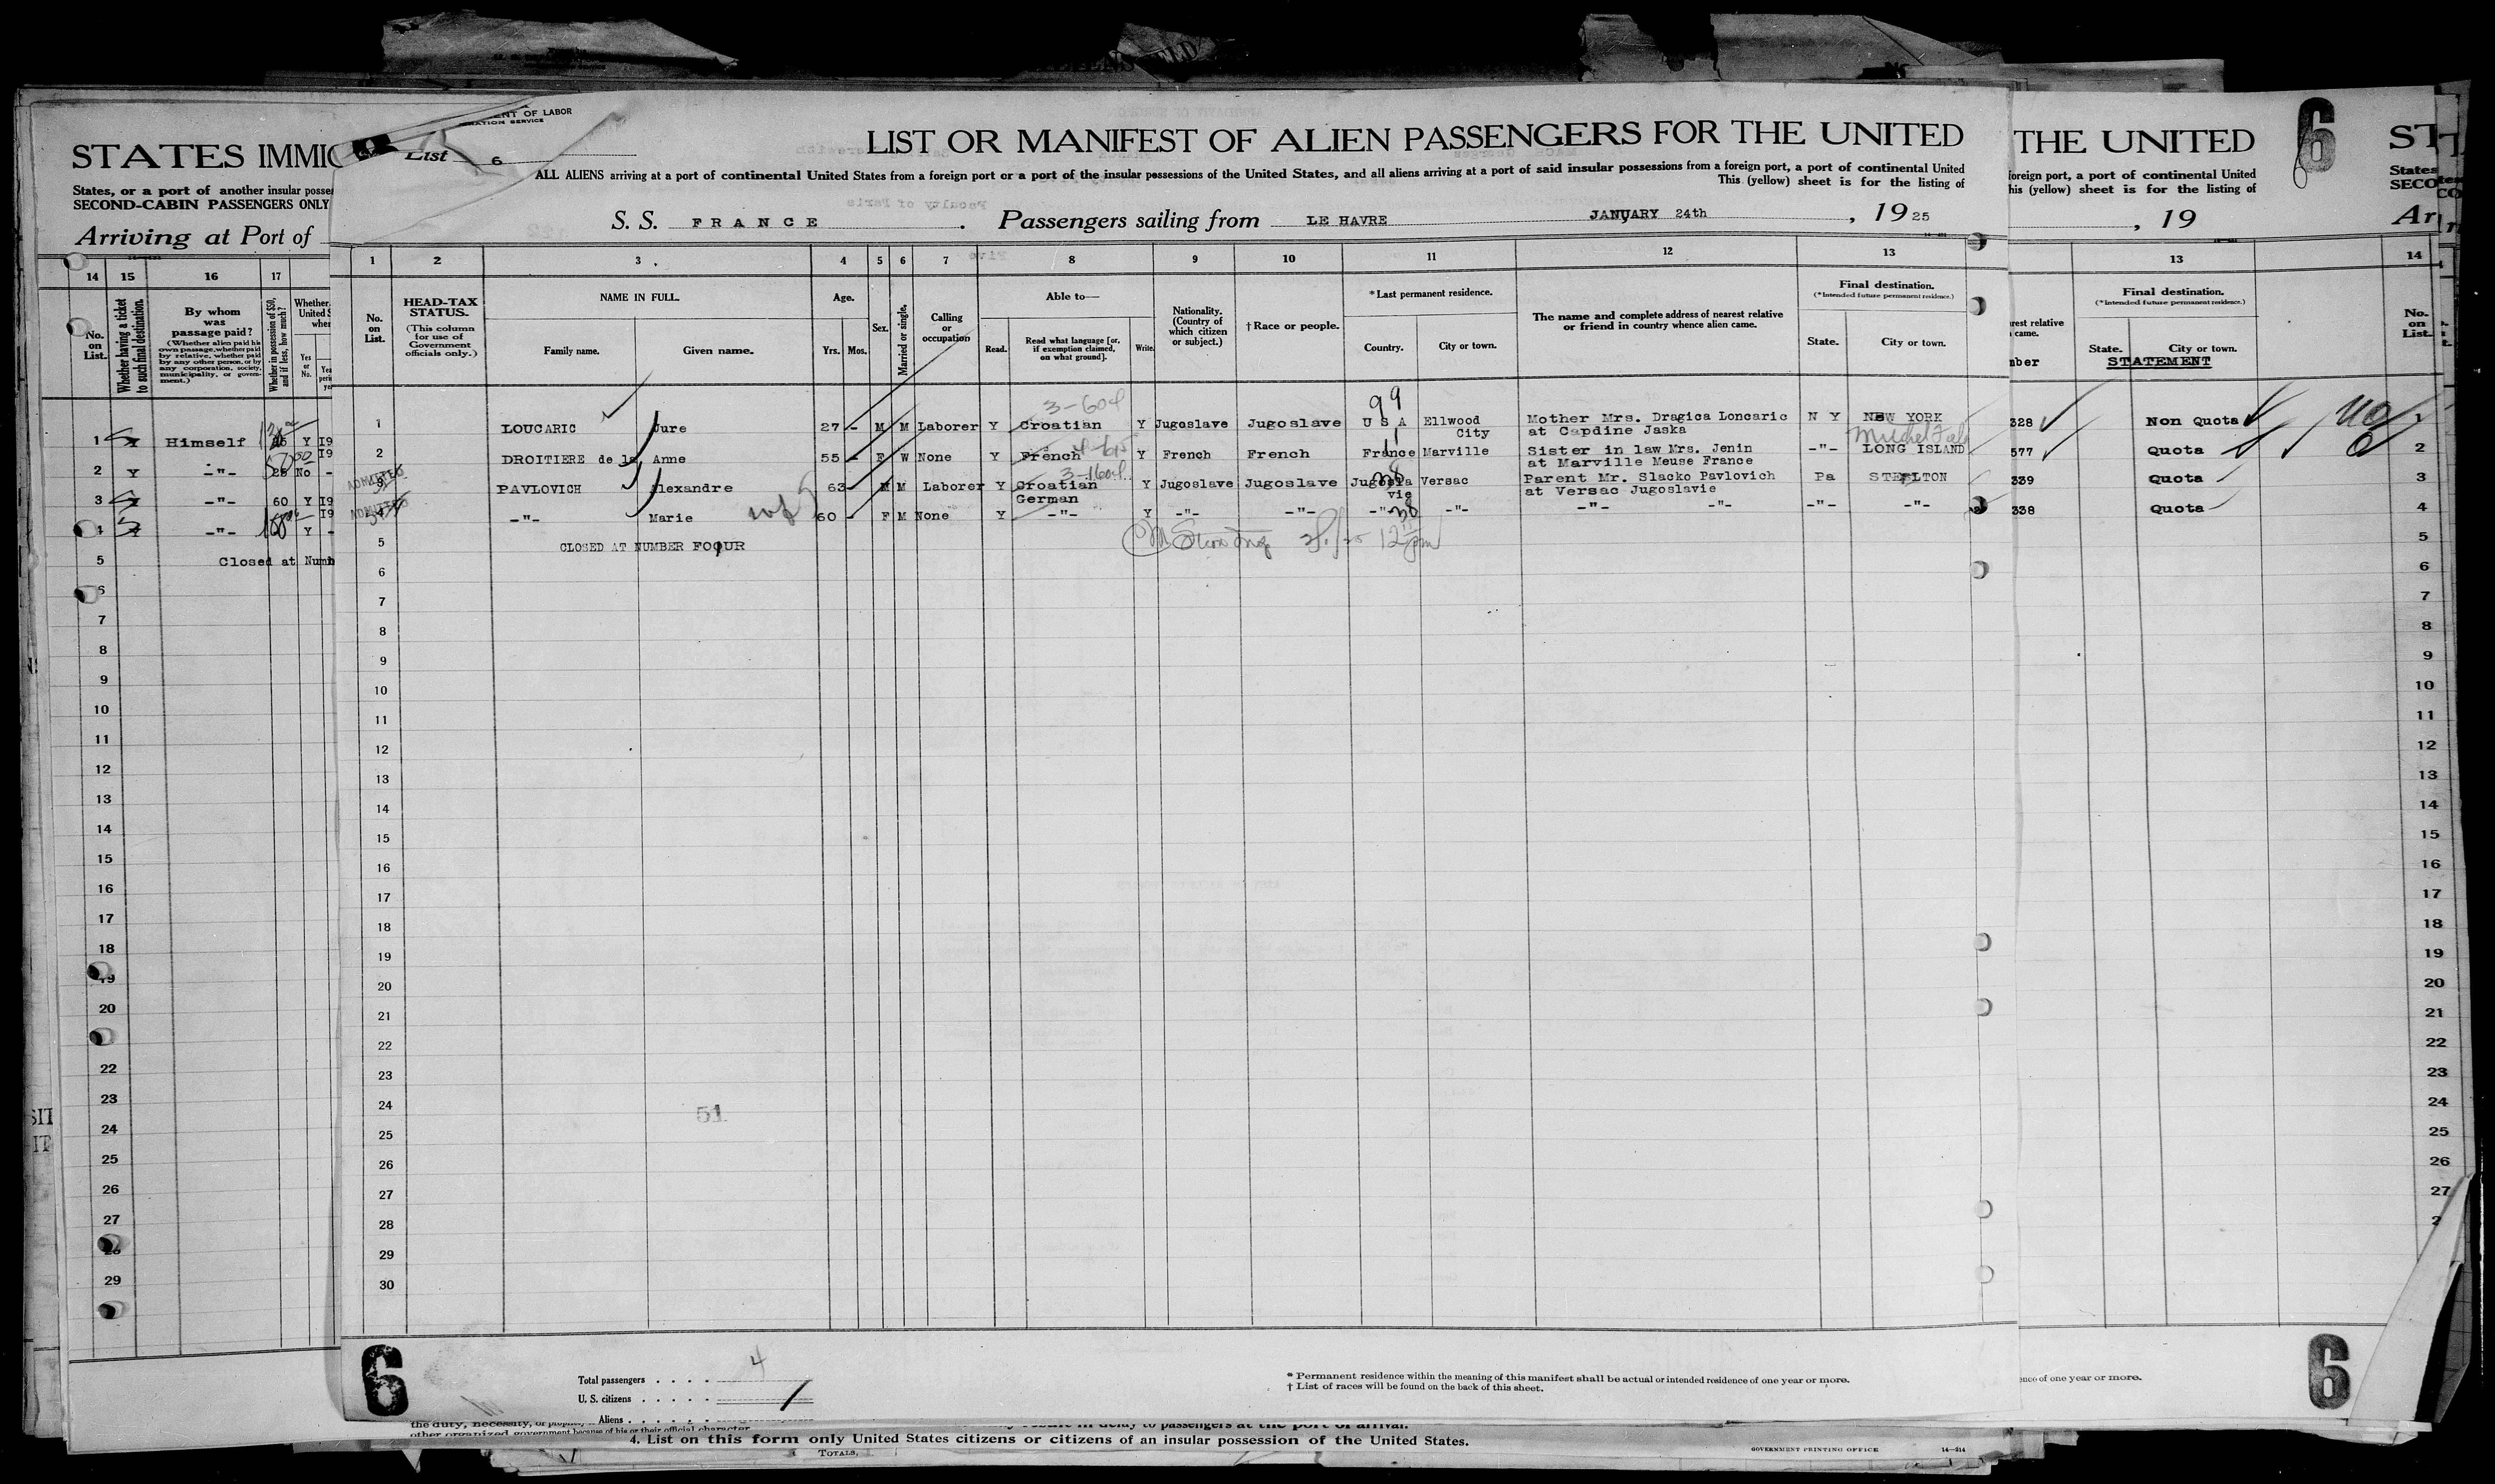 STATES IMMIG
States, or a port of another insular posse
SECOND-CABIN PASSENGERS ONLY
Arriving at Port of
14 15 16 17
No. on List.
Whether having a ticket to such final destination.
By whom was passage paid?
(Whether alien paid his own passage, whether paid by relative, whether paid by any other person, or by any corporation, society, municipality, or government.)
Whether in possession of $50, and if less, how much?
Yes or No.
1 Himself Y 19
2 Y -"- 25 No -
3 -"- 60 Y 19
4 -"- Y -
5 Closed at Numb
6
7
8
9
10
11
12
13
14
15
16
17
18
19
20
21
22
23
24
25
26
27
28
29
ENT OF LABOR
RATION SERVICE
List 6
LIST OR MANIFEST OF ALIEN PASSENGERS FOR THE UNITED
ALL ALIENS arriving at a port of continental United States from a foreign port or a port of the insular possessions of the United States, and all aliens arriving at a port of said insular possessions from a foreign port, a port of continental United
This (yellow) sheet is for the listing of
S. S. FRANCE . Passengers sailing from LE HAVRE JANUARY 24th , 19 25
1 2 3 4 5 6 7 8 9 10 11 12 13
No. on List.
HEAD-TAX STATUS.
(This column for use of Government officials only.)
NAME IN FULL.
Family name. Given name.
Age.
Yrs. Mos.
Sex.
Married or single.
Calling or occupation
Able to—
Read. Read what language [or, if exemption claimed, on what ground]. Write.
Nationality. (Country of which citizen or subject.)
†Race or people.
*Last permanent residence.
Country. City or town.
The name and complete address of nearest relative or friend in country whence alien came.
Final destination.
(*Intended future permanent residence.)
State. City or town.
3-604 99
1 LOUCARIC Jure 27 - M M Laborer Y Croatian Y Jugoslave Jugoslave U S A Ellwood City Mother Mrs. Dragica Loncaric at Capdine Jaska N Y NEW YORK
2 DROITIERE de la Anne 55 - F W None Y French Y French French France Marville Sister in law Mrs. Jenin at Marville Meuse France -"- LONG ISLAND
ADMITTED
3 PAVLOVICH Alexandre 63 - M M Laborer Y Croatian German Y Jugoslave Jugoslave Jugosla vie Versac Parent Mr. Slacko Pavlovich at Versac Jugoslavie Pa STEELTON
ADMITTED
4 -"- Marie wf 60 - F M None Y -"- Y -"- -"- -"- -"- -"- -"- -"- -"-
5 CLOSED AT NUMBER FOUR
6
7
8
9
10
11
12
13
14
15
16
17
18
19
20
21
22
23
24
51
25
26
27
28
29
30
6
Total passengers . . . . 4
U. S. citizens . . . . .
Aliens . . . . . .
* Permanent residence within the meaning of this manifest shall be actual or intended residence of one year or more.
† List of races will be found on the back of this sheet.
other organized government because of his or their official character
4. List on this form only United States citizens or citizens of an insular possession of the United States.
TOTALS,
GOVERNMENT PRINTING OFFICE 14—514
THE UNITED
6
foreign port, a port of continental United
his (yellow) sheet is for the listing of
, 19
13
Final destination.
(*Intended future permanent residence.)
State. City or town.
STATEMENT
328 Non Quota
577 Quota
339 Quota
338 Quota
ence of one year or more.
6
ST
States
SECO
Ar
14
No. on List.
1
2
3
4
5
6
7
8
9
10
11
12
13
14
15
16
17
18
19
20
21
22
23
24
25
26
27
2